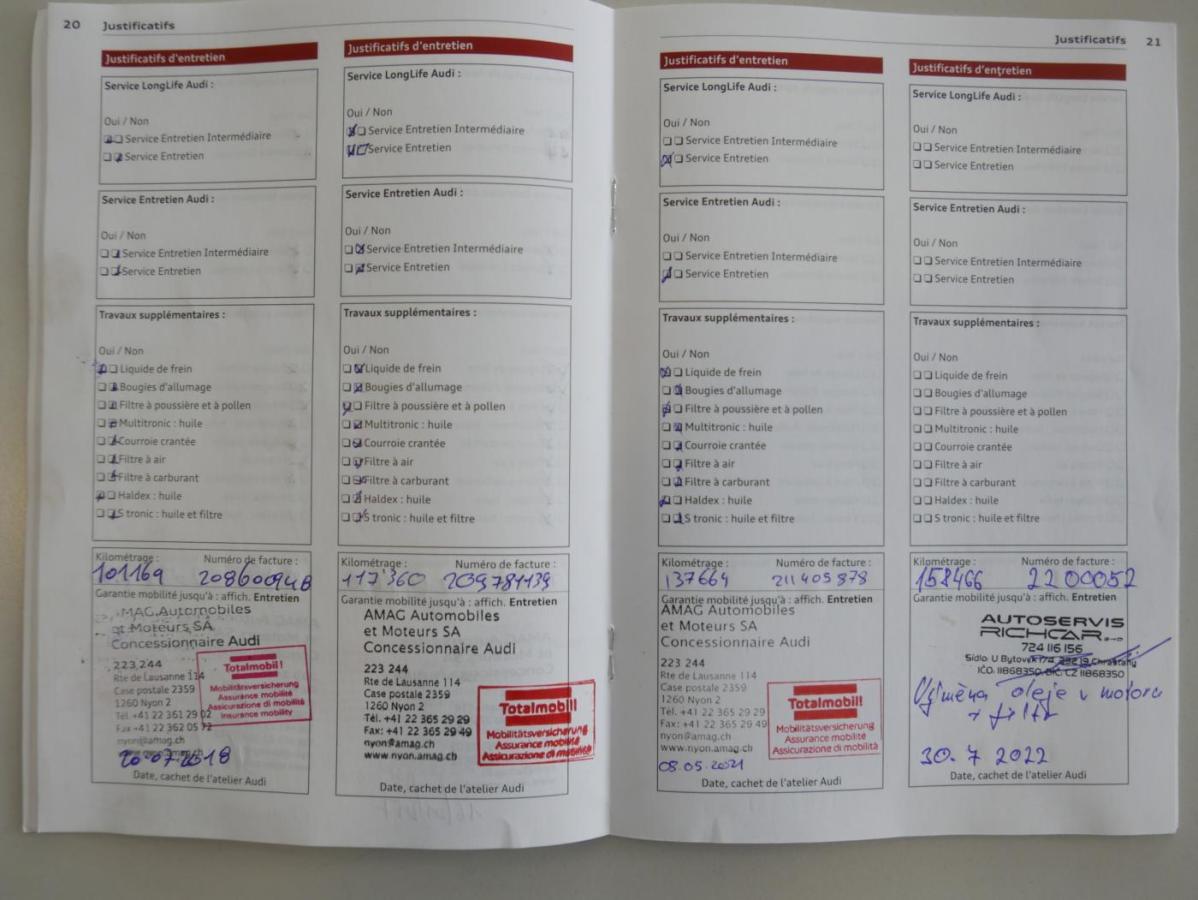 20 Justificatifs
Justificatifs d'entretien
Service LongLife Audi :
Oui / Non
Service Entretien Intermédiaire
Service Entretien
Service Entretien Audi :
Oui / Non
Service Entretien Intermédiaire
Service Entretien
Travaux supplémentaires :
Oui / Non
Liquide de frein
Bougies d'allumage
Filtre à poussière et à pollen
Multitronic : huile
Courroie crantée
Filtre à air
Filtre à carburant
Haldex : huile
S tronic : huile et filtre
Kilométrage : Numéro de facture :
101169 208600948
Garantie mobilité jusqu'à : affich. Entretien
AMAG Automobiles
et Moteurs SA
Concessionnaire Audi
223 244
Rte de Lausanne 114
Case postale 2359
1260 Nyon 2
Tél. +41 22 361 29 02
Fax +41 22 362 05 72
nyon@amag.ch
Totalmobil!
Mobilitätsversicherung
Assurance mobilité
Assicurazione di mobilità
Insurance mobility
20-07-2018
Date, cachet de l'atelier Audi
Justificatifs d'entretien
Service LongLife Audi :
Oui / Non
Service Entretien Intermédiaire
Service Entretien
Service Entretien Audi :
Oui / Non
Service Entretien Intermédiaire
Service Entretien
Travaux supplémentaires :
Oui / Non
Liquide de frein
Bougies d'allumage
Filtre à poussière et à pollen
Multitronic : huile
Courroie crantée
Filtre à air
Filtre à carburant
Haldex : huile
S tronic : huile et filtre
Kilométrage : Numéro de facture :
117'360 209781139
Garantie mobilité jusqu'à : affich. Entretien
AMAG Automobiles
et Moteurs SA
Concessionnaire Audi
223 244
Rte de Lausanne 114
Case postale 2359
1260 Nyon 2
Tél. +41 22 365 29 29
Fax: +41 22 365 29 49
nyon@amag.ch
www.nyon.amag.ch
Totalmobil!
Mobilitätsversicherung
Assurance mobilité
Assicurazione di mobilità
Date, cachet de l'atelier Audi
Justificatifs 21
Justificatifs d'entretien
Service LongLife Audi :
Oui / Non
Service Entretien Intermédiaire
Service Entretien
Service Entretien Audi :
Oui / Non
Service Entretien Intermédiaire
Service Entretien
Travaux supplémentaires :
Oui / Non
Liquide de frein
Bougies d'allumage
Filtre à poussière et à pollen
Multitronic : huile
Courroie crantée
Filtre à air
Filtre à carburant
Haldex : huile
S tronic : huile et filtre
Kilométrage : Numéro de facture :
137664 211405878
Garantie mobilité jusqu'à : affich. Entretien
AMAG Automobiles
et Moteurs SA
Concessionnaire Audi
223 244
Rte de Lausanne 114
Case postale 2359
1260 Nyon 2
Tél. +41 22 365 29 29
Fax: +41 22 365 29 49
nyon@amag.ch
www.nyon.amag.ch
Totalmobil!
Mobilitätsversicherung
Assurance mobilité
Assicurazione di mobilità
08.05.2021
Date, cachet de l'atelier Audi
Justificatifs d'entretien
Service LongLife Audi :
Oui / Non
Service Entretien Intermédiaire
Service Entretien
Service Entretien Audi :
Oui / Non
Service Entretien Intermédiaire
Service Entretien
Travaux supplémentaires :
Oui / Non
Liquide de frein
Bougies d'allumage
Filtre à poussière et à pollen
Multitronic : huile
Courroie crantée
Filtre à air
Filtre à carburant
Haldex : huile
S tronic : huile et filtre
Kilométrage : Numéro de facture :
158466 2200052
Garantie mobilité jusqu'à : affich. Entretien
AUTOSERVIS
RICHCAR s.r.o
724 116 156
Sídlo: U Bytovek 174, 252 19 Chrášťany
IČO: 11868350, DIČ: CZ 11868350
Výměna oleje v motoru
+ filtr
30.7 2022
Date, cachet de l'atelier Audi